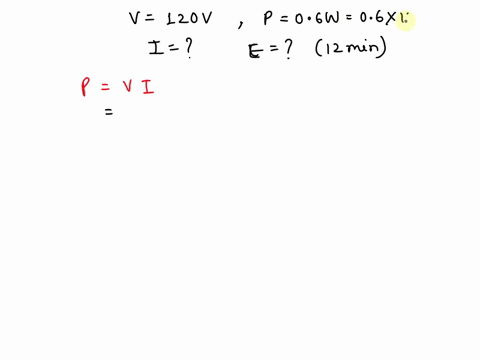 V = 120V , P = 0.6W = 0.6X
I = ? E = ? (12 min)
P = V I
=